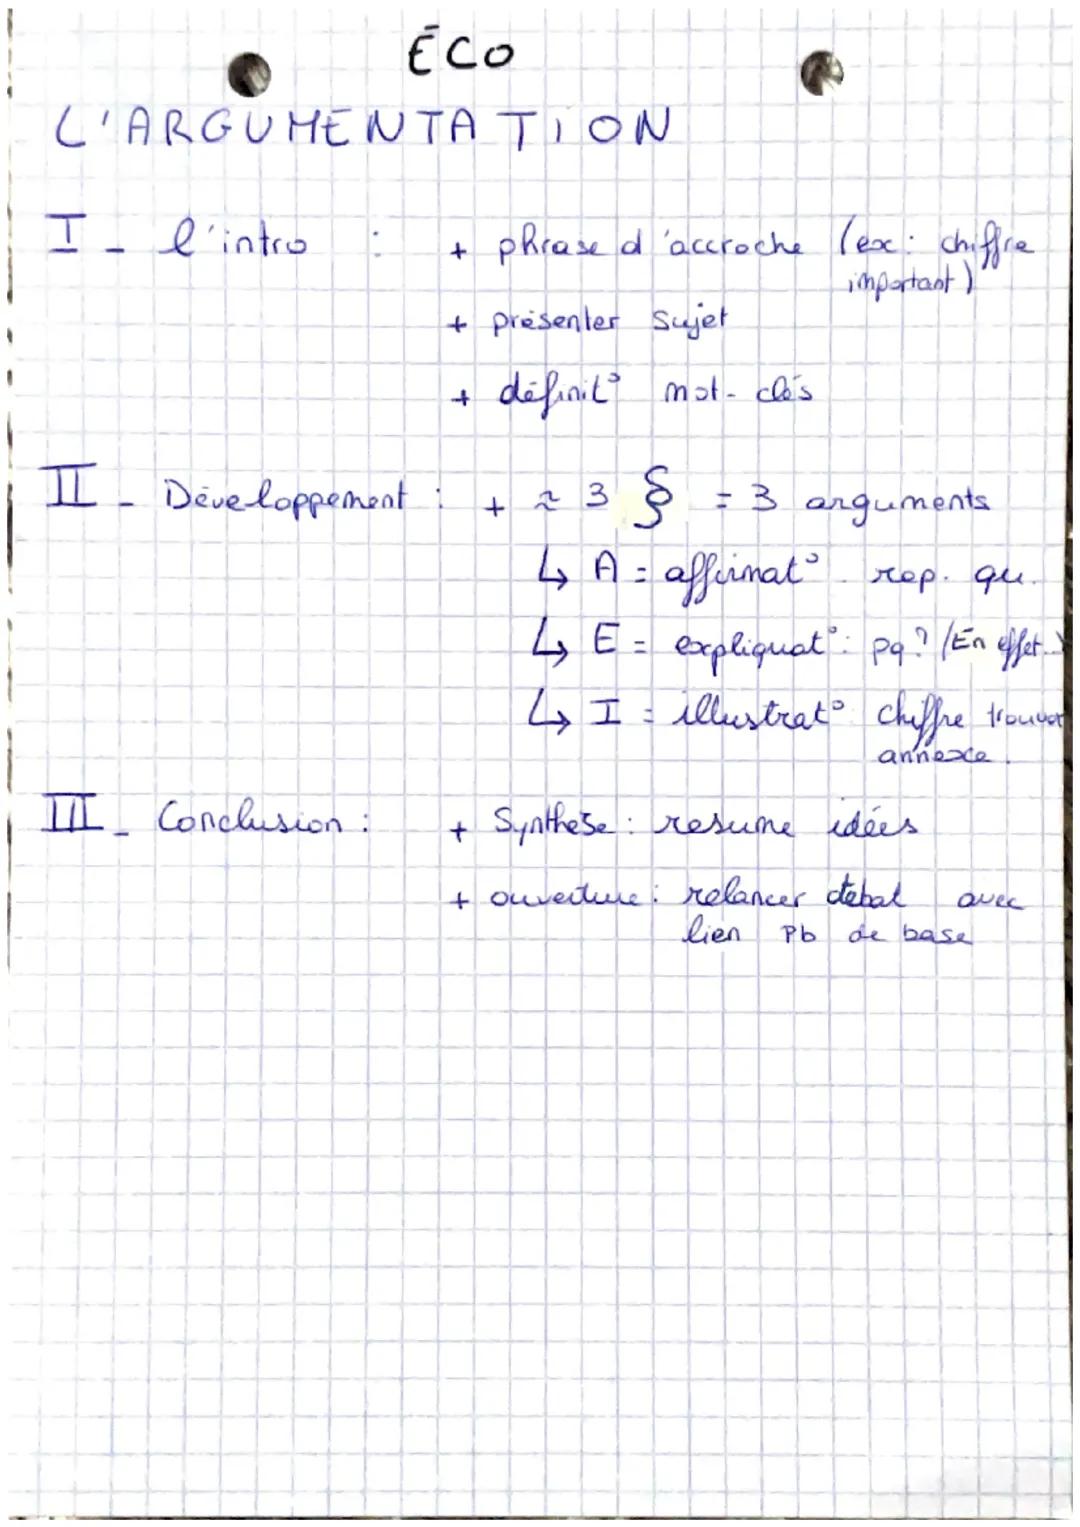 ÉCO
L'ARGUMENTATION
I - l'intro : + phrase d'accroche (ex: chiffre
important)
+ présenter sujet
+ définit° mot-clés
II - Développement : + ≈ 3 § = 3 arguments
↳ A = affirmat° rep. qu.
↳ E = expliquat° : pq? (En effet...)
↳ I = illustrat° chiffre trouver
annexe.
III - Conclusion : + Synthèse : resume idées
+ ouverture : relancer débat avec
lien Pb de base